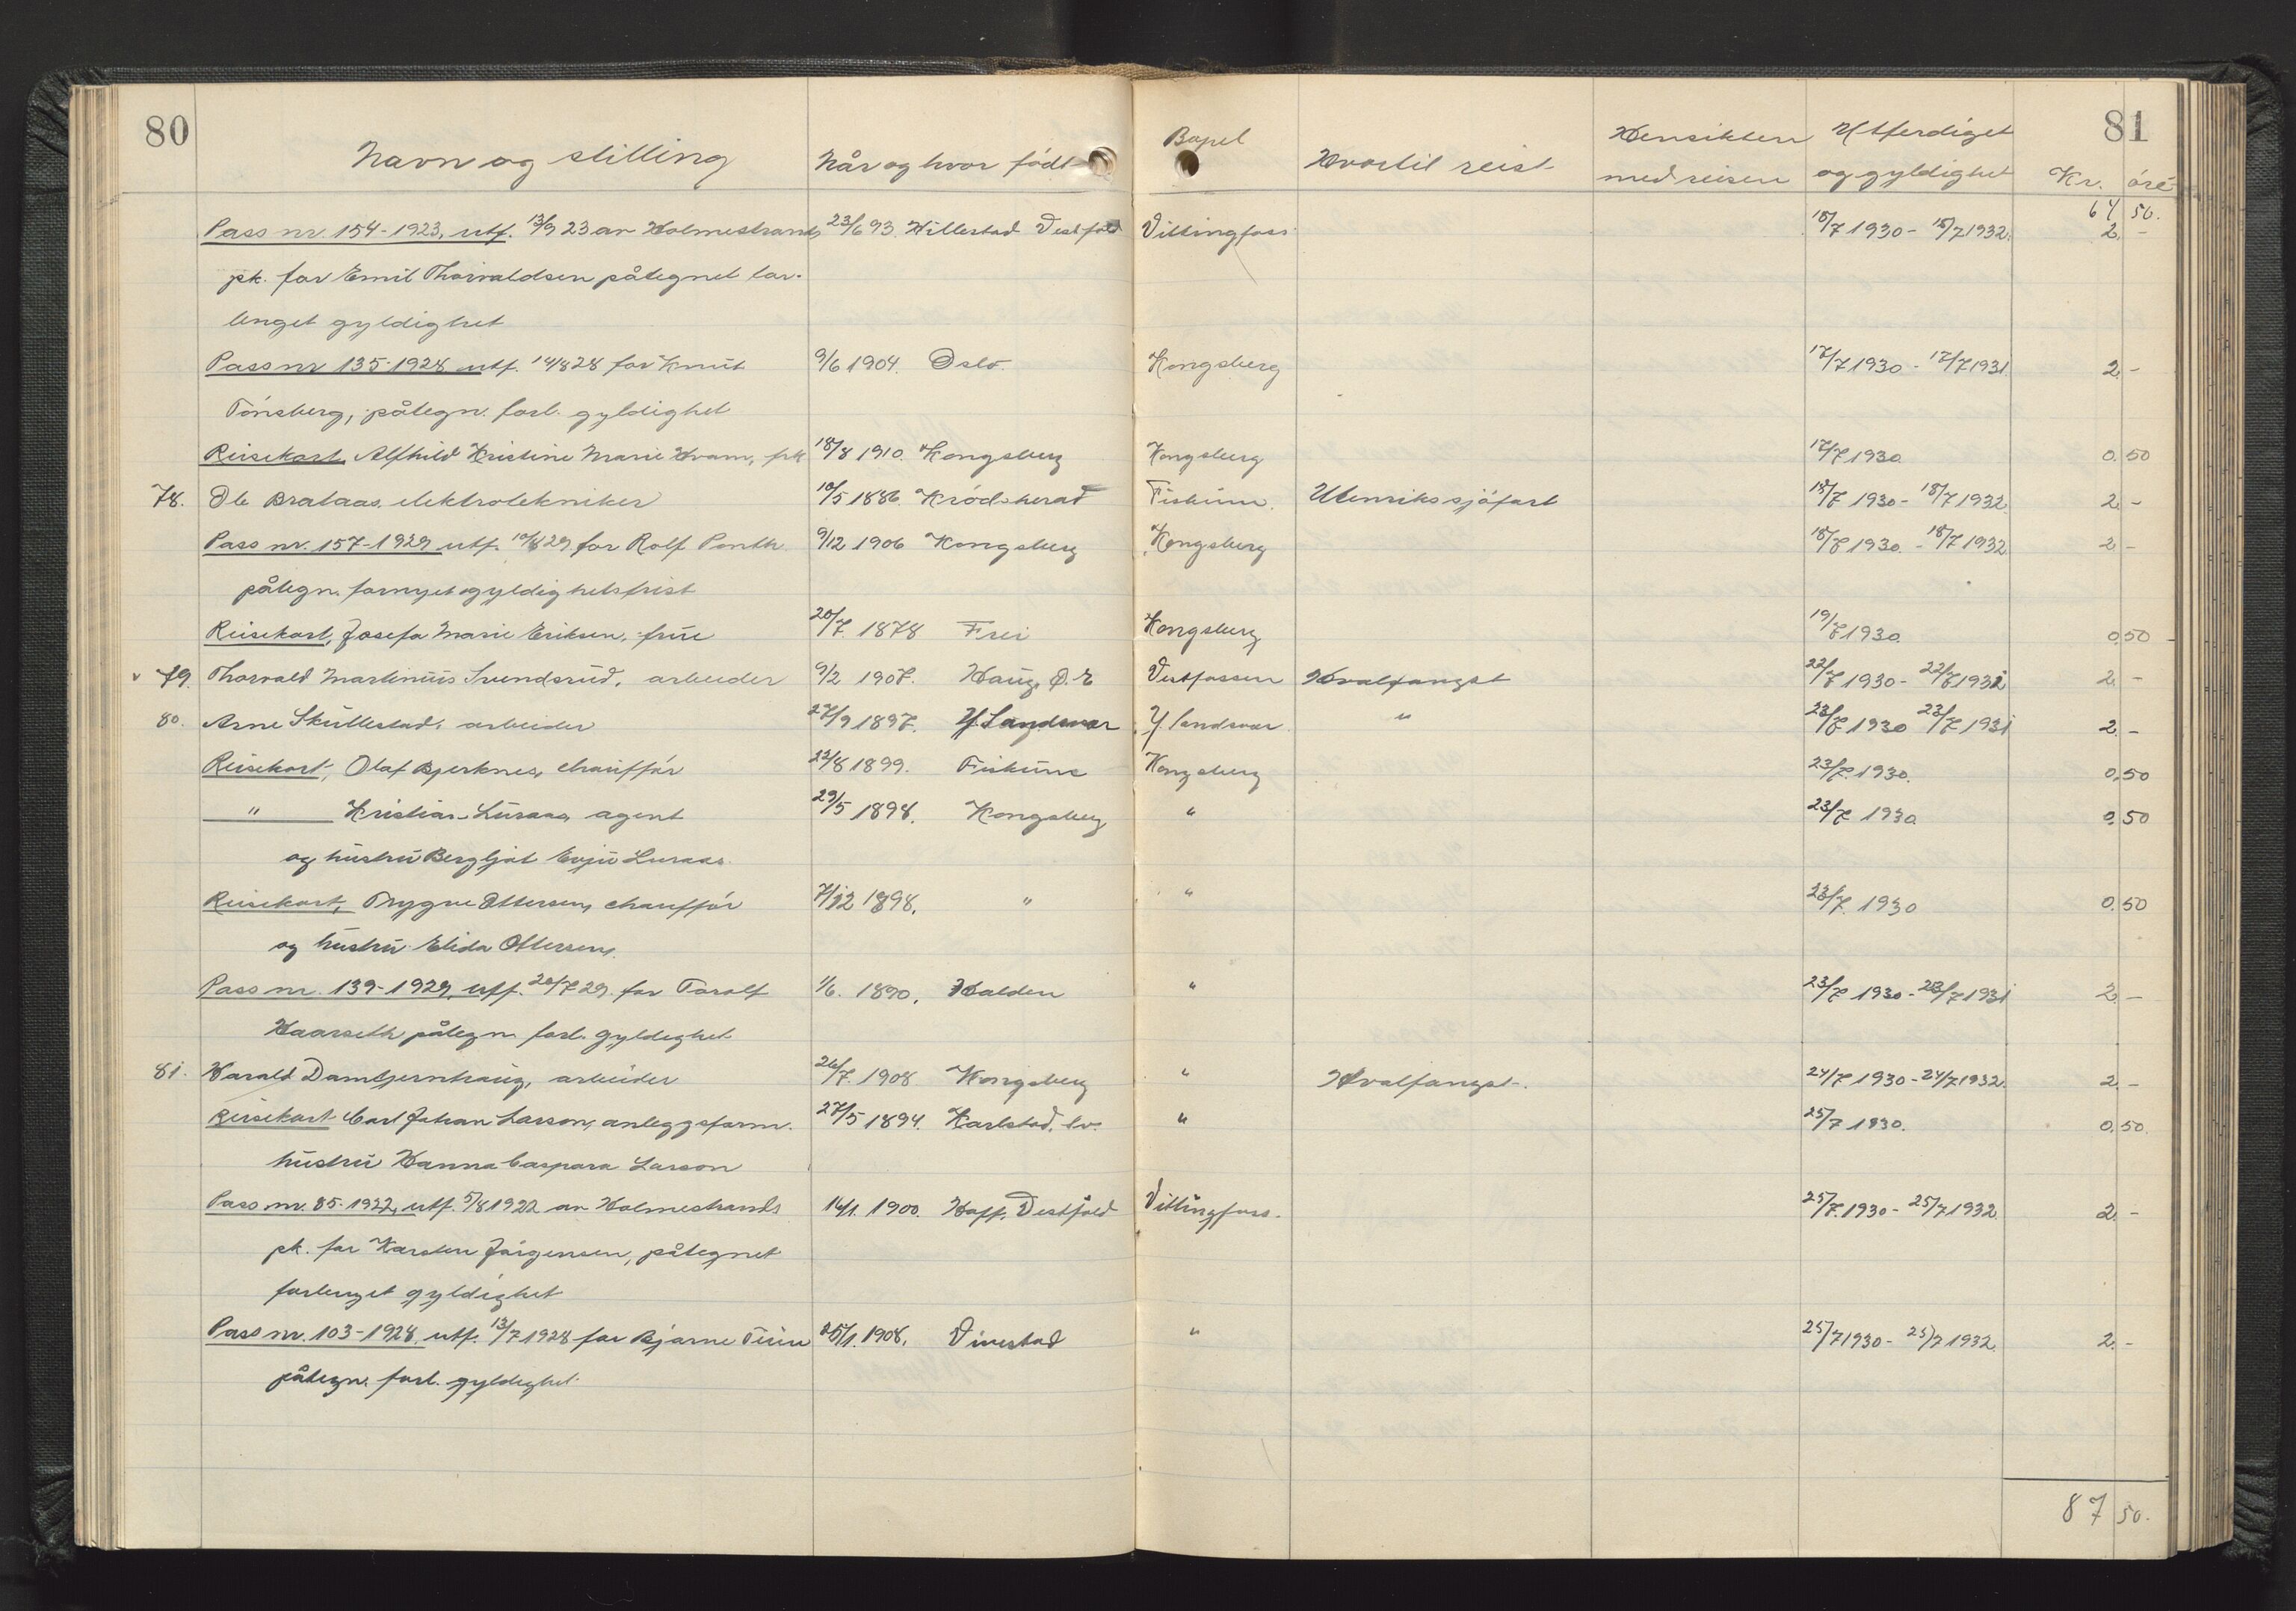 80
81
Navn og stilling Når og hvor født Bopel Hvortil reist Hensikten med reisen Utferdiget og gyldighet Kr. øre
64 50.
Pass nr. 154-1923, utf. 13/9 23 av Holmestrands 23/6 93. Hillestad Vestfold Vittingfoss 15/7 1930 - 15/7 1932. 2. -
pk. for Emil Thorvaldsen påtegnet for-
lenget gyldighet
Pass nr 135-1928 utf. 14/8 28 for Knut 9/6 1904. Oslo. Kongsberg 17/7 1930 - 17/7 1931. 2. -
Tønsberg, påtegn. forl. gyldighet
Reisekort, Alfhild Kristine Marie Kvam, frk 18/8 1910. Kongsberg Kongsberg 17/7 1930. 0. 50
78. Ole Brataas, elektrotekniker 10/5 1886. Krødsherad Fiskum. Utenriks sjøfart 18/7 1930 - 18/7 1932. 2. -
Pass nr. 157-1929 utf. 10/8 29 for Rolf Ponth. 9/12 1906 Kongsberg Kongsberg 18/7 1930. - 18/7 1932. 2 -
påtegn. fornyet gyldighetsfrist
Reisekort, Josefa Marie Eriksen, frue 20/7. 1878 Frei Kongsberg 19/7 1930. 0.50 -
v 79. Thorvald Martinius Svendsrud, arbeider 9/2 1907. Haug, Ø.E Vestfossen Hvalfangst 22/7 1930 - 22/7 1932 2. -
80. Arne Skullestad, arbeider 27/9 1897. Y. Sandsvær Y. Sandsvær " 23/7 1930 23/7 1931 2. -
Reisekort, Olaf Bjerknes, chauffør 22/8 1899. Fiskum Kongsberg 23/7. 1930. 0.50
" Kristian Luraas, agent 29/5 1898. Kongsberg " 23/7 1930. 0. 50
og hustru Bergljot Evju Luraas.
Reisekort, Trygve Ottersen, chauffør 7/12 1898. " " 23/7. 1930 0.50
og hustru Elida Ottersen.
Pass nr. 139-1929 utf. 20/7 29. for Torolf 1/6. 1890. Halden " 23/7 1930 - 23/7 1931 2. -
Haarseth påtegn. forl. gyldighet
81. Harald Damtjernhaug, arbeider 26/7. 1908 Kongsberg " Hvalfangst. 24/7 1930 - 24/7 1932. 2. -
Reisekort Carl Johan Larson, anleggsform. 27/5 1894. Karlstad, Sv. " 25/7 1930. 0.50.
hustru Hanna Caspara Larson
Pass nr. 85-1922, utf. 5/8 1922 av Holmestrands 16/1. 1900. Hoff, Vestfold Vittingfoss. 25/7. 1930 - 25/7 1932. 2. -
pk. for Karsten Jørgensen, påtegnet
forlenget gyldighet
Pass nr. 103-1928, utf. 13/7 1928 for Bjarne Tuen 25/1. 1908. Vivestad " 25/7 1930 - 25/7 1932. 2. -
påtegn. forl. gyldighet.
87 50.